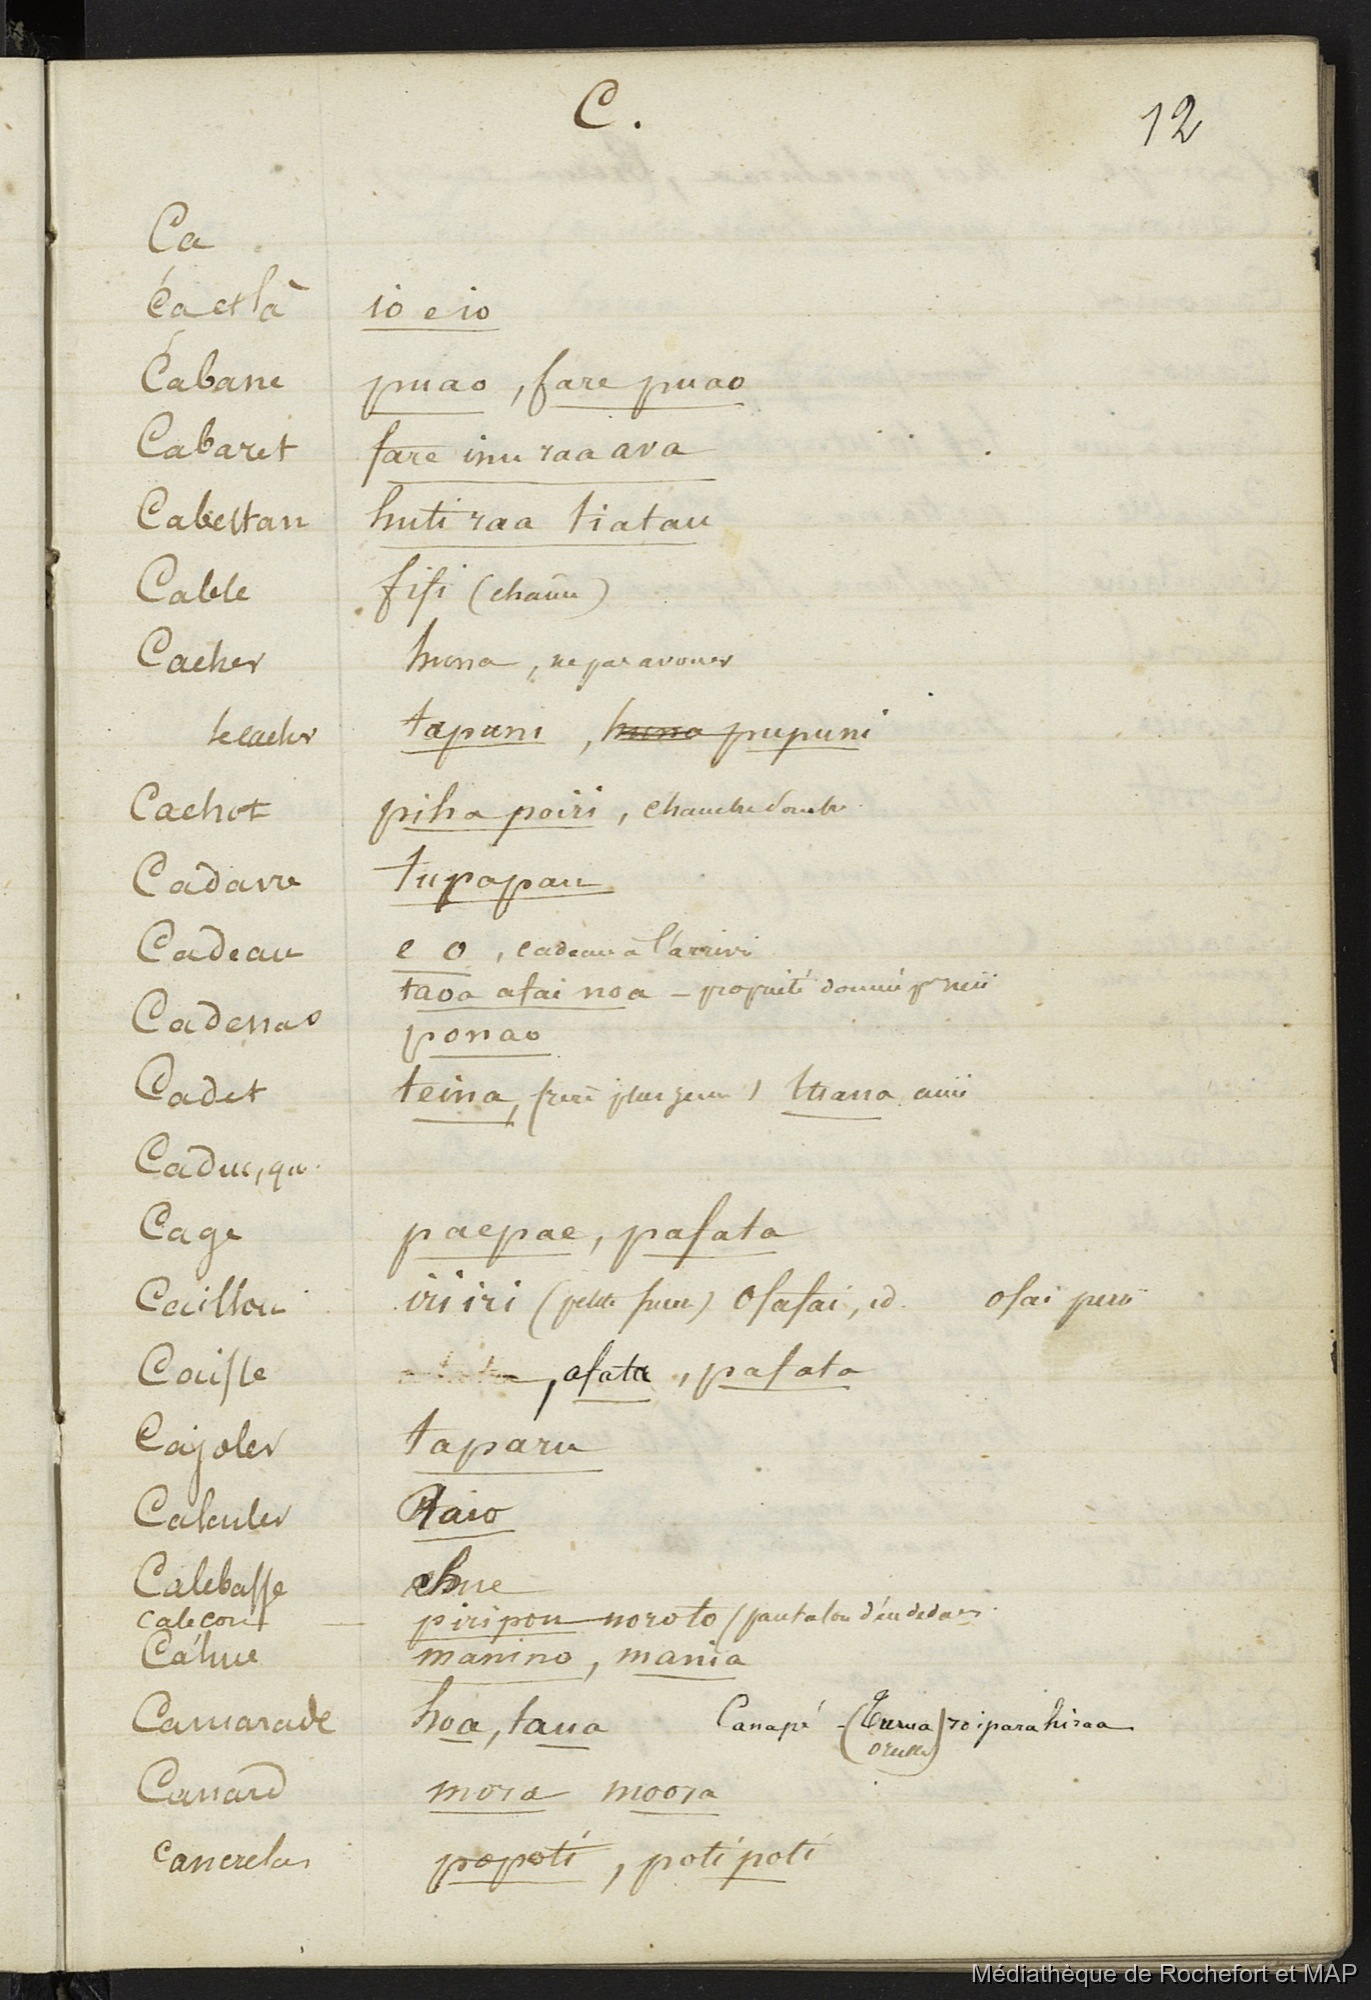 C.
12
Ca
ça et là io e io
Cabane puao, fare puao
Cabaret fare inu raa ava
Cabestan huti raa tiatau
Cable fifi (chaîne)
Cacher huna, ne pas avouer
se cacher tapuni, huna pupuni
Cachot piha poiri, chambre sombre
Cadavre tupapau
Cadeau e o, cadeau à l'arrivé
taoa afai noa - propriété donnée pr rien
Cadenas ponao
Cadet teina, frère plus jeune
Caduc, que
Cage paepae, pafata
Caillou iriiri (petite pierre) Ofafai, id. ofai
Caisse , afata, pafata
Cajoler taparu
Calculer taio
Calebasse hue
caleçon piripou noroto (pantalon d'en dedans
Calme manino, mania
Camarade hoa, taua Canapé - (Turua) roi parahiraa
Canard mora moora
cancrelas popoti, potipoti
Médiathèque de Rochefort et MAP